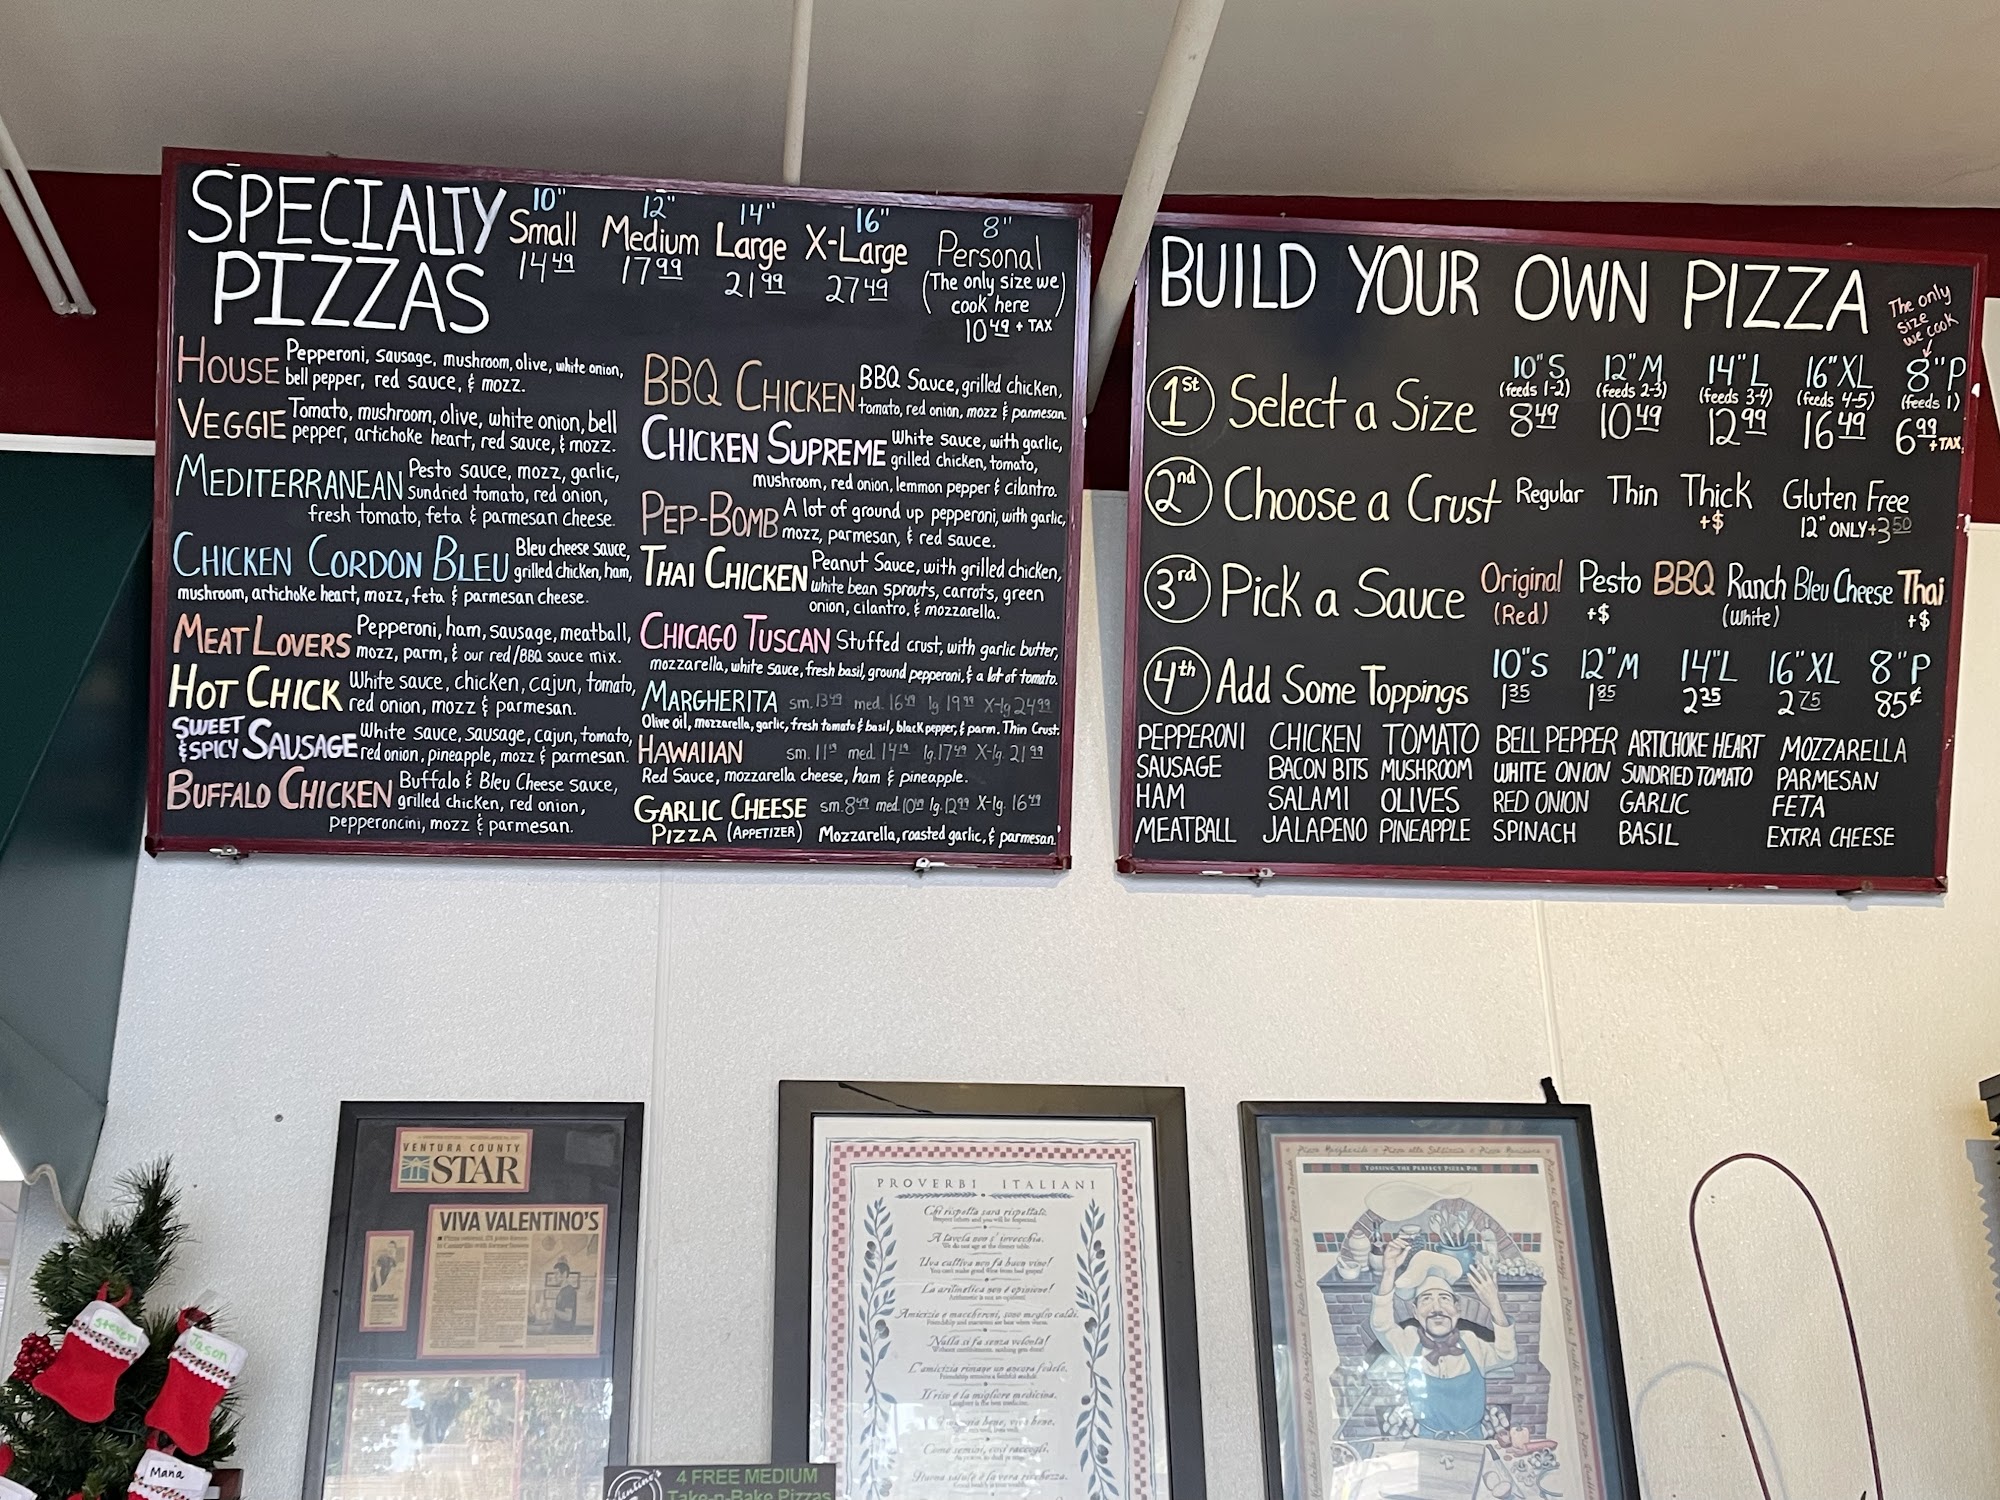 SPECIALTY
PIZZAS
10"
Small
14 49
12"
Medium
17 99
14"
Large
21 99
16"
X-Large
27 49
8"
Personal
(The only size we
cook here)
10 49 + TAX
HOUSE Pepperoni, sausage, mushroom, olive, white onion,
bell pepper, red sauce, & mozz.
VEGGIE Tomato, mushroom, olive, white onion, bell
pepper, artichoke heart, red sauce, & mozz.
MEDITERRANEAN Pesto sauce, mozz, garlic,
sundried tomato, red onion,
fresh tomato, feta & parmesan cheese.
CHICKEN CORDON BLEU Bleu cheese sauce,
grilled chicken, ham,
mushroom, artichoke heart, mozz, feta & parmesan cheese.
MEAT LOVERS Pepperoni, ham, sausage, meatball,
mozz, parm, & our red/BBQ sauce mix.
HOT CHICK White sauce, chicken, cajun, tomato,
red onion, mozz & parmesan.
SWEET
& SPICY SAUSAGE White sauce, sausage, cajun, tomato,
red onion, pineapple, mozz & parmesan.
BUFFALO CHICKEN Buffalo & Bleu Cheese sauce,
grilled chicken, red onion,
pepperoncini, mozz & parmesan.
BBQ CHICKEN BBQ Sauce, grilled chicken,
tomato, red onion, mozz & parmesan
CHICKEN SUPREME White sauce, with garlic,
grilled chicken, tomato,
mushroom, red onion, lemmon pepper & cilantro.
PEP-BOMB A lot of ground up pepperoni, with garlic,
mozz, parmesan, & red sauce.
THAI CHICKEN Peanut Sauce, with grilled chicken,
white bean sprouts, carrots, green
onion, cilantro, & mozzarella.
CHICAGO TUSCAN Stuffed crust, with garlic butter,
mozzarella, white sauce, fresh basil, ground pepperoni, & a lot of tomato.
MARGHERITA sm. 13 49 med. 16 49 lg 19 99 X-lg 24 99
Olive oil, mozzarella, garlic, fresh tomato & basil, black pepper, & parm. Thin Crust.
HAWAIIAN sm. 11 49 med. 14 49 lg. 17 49 X-lg. 21 99
Red Sauce, mozzarella cheese, ham & pineapple.
GARLIC CHEESE sm. 8 49 med. 10 49 lg. 12 99 X-lg. 16 49
PIZZA (APPETIZER) Mozzarella, roasted garlic, & parmesan.
BUILD YOUR OWN PIZZA
The only
size
we cook
1st Select a Size
10" S
(feeds 1-2)
8 49
12" M
(feeds 2-3)
10 49
14" L
(feeds 3-4)
12 99
16" XL
(feeds 4-5)
16 49
8" P
(feeds 1)
6 99
+ TAX
2nd Choose a Crust Regular Thin Thick Gluten Free
+$ 12" ONLY + 3 50
3rd Pick a Sauce Original Pesto BBQ Ranch Bleu Cheese Thai
(Red) +$ (White) +$
4th Add Some Toppings
10" S 12" M 14" L 16" XL 8" P
1 35 1 85 2 25 2 75 85¢
PEPPERONI CHICKEN TOMATO BELL PEPPER ARTICHOKE HEART MOZZARELLA
SAUSAGE BACON BITS MUSHROOM WHITE ONION SUNDRIED TOMATO PARMESAN
HAM SALAMI OLIVES RED ONION GARLIC FETA
MEATBALL JALAPENO PINEAPPLE SPINACH BASIL EXTRA CHEESE
VENTURA COUNTY
STAR
VIVA VALENTINO'S
PROVERBI ITALIANI
Chi rispetta sarà rispettato.
Respect others and you will be respected.
A tavola non s'invecchia.
We do not age at the dinner table.
Uva cattiva non fa buon vino!
You can't make good wine from bad grapes!
La aritmetica non è opinione!
Arithmetic is not an opinion!
Amicizia e maccheroni, sono meglio caldi.
Friendship and macaroni are best when warm.
Nulla si fa senza volontà!
Without commitment, nothing gets done!
L'amicizia rimane un ancora fedele.
Friendship remains a faithful anchor.
Il riso è la migliore medicina.
Laughter is the best medicine.
TOSSING THE PERFECT PIZZA PIE
Steven
Jason
Mana
4 FREE MEDIUM
Take-n-Bake Pizzas